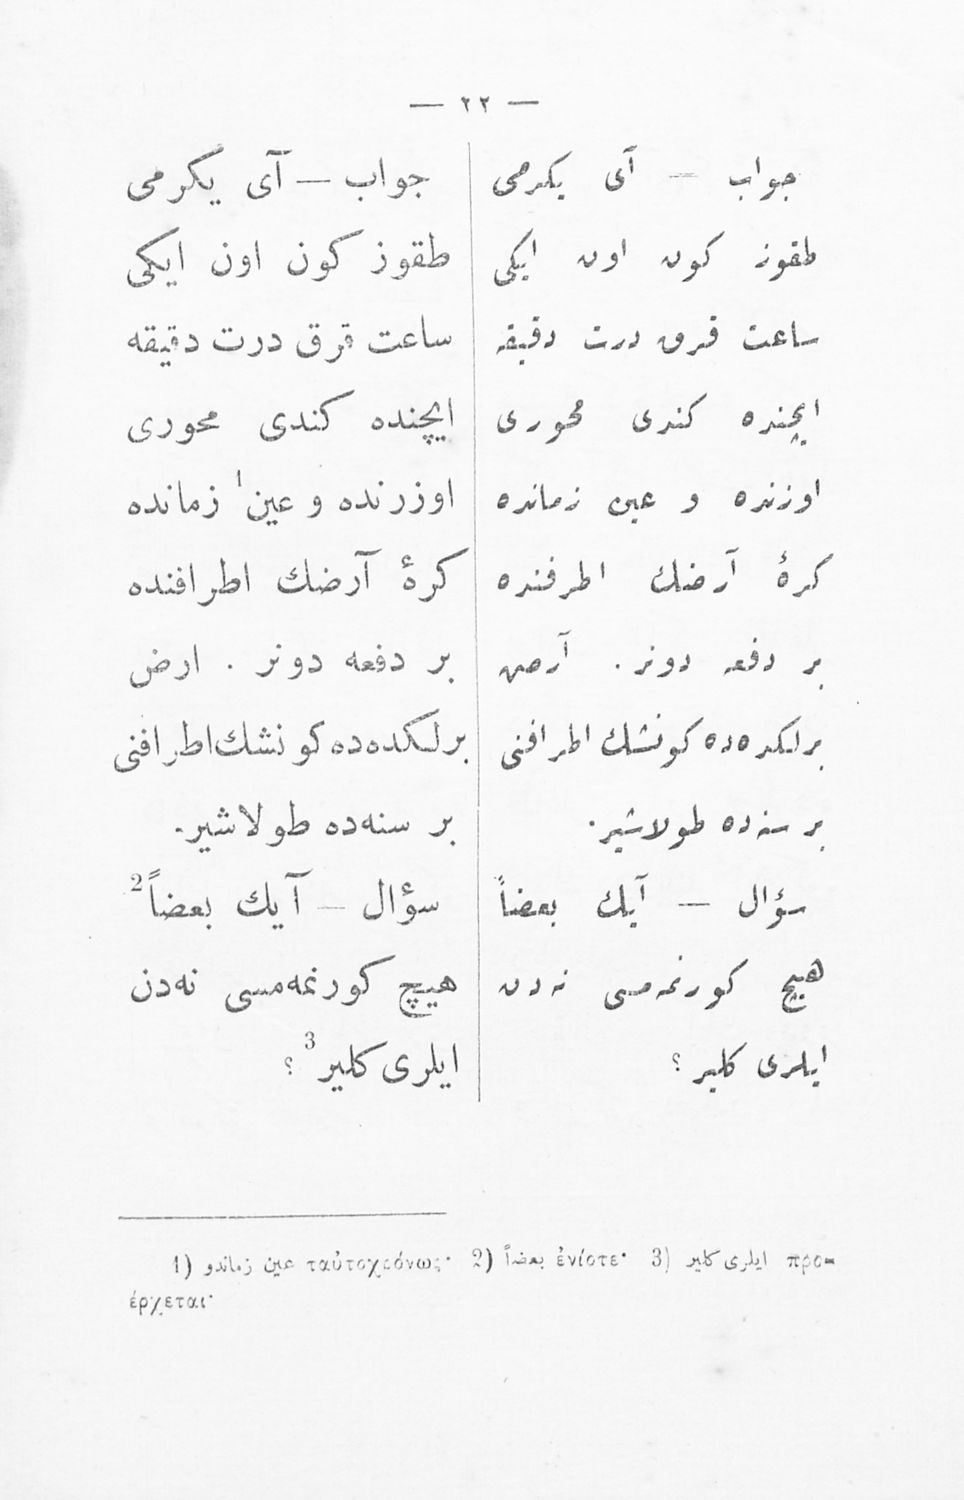 — ٢٢ —
جواب — آی یكرمی
طقوز كون اون ایكی
ساعت قرق درت دقیقه
ایچنده كندی محوری
اوزرنده و عین زمانده
كرۀ آرضك اطرفنده
بر دفعه دونر . آرض
برلكده‌ده كونشك اطرافنی
بر سنه‌ده طولاشیر.
سؤال — آیك بعضاً
هیچ كورنمه‌مسی نه‌دن
ایلری كلیر ؟
جواب — آی یكرمی
طقوز كون اون ایكی
ساعت قرق درت دقیقه
ایچنده كندی محوری
اوزرنده و عین¹ زمانده
كرۀ آرضك اطرافنده
بر دفعه دونر . ارض
برلكده‌ده كونشك اطرافنی
بر سنه‌ده طولاشیر.
سؤال — آیك بعضاً²
هیچ كورنمه‌مسی نه‌دن
ایلری كلیر³ ؟
1) عین زماندو ταὐτοχρόνως· 2) بعضاً ἐνίοτε· 3) ایلری كلیر προ=
έρχεται·